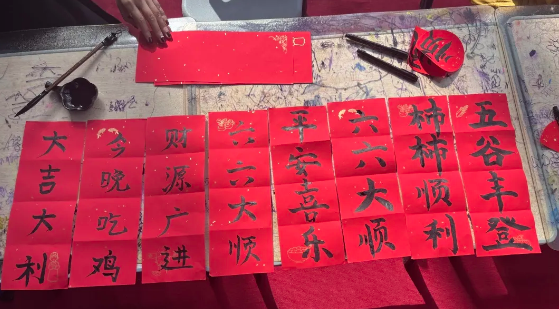 大吉大利
今晚吃鸡
财源广进
六六大顺
平安喜乐
六六大顺
柿柿顺利
五谷丰登